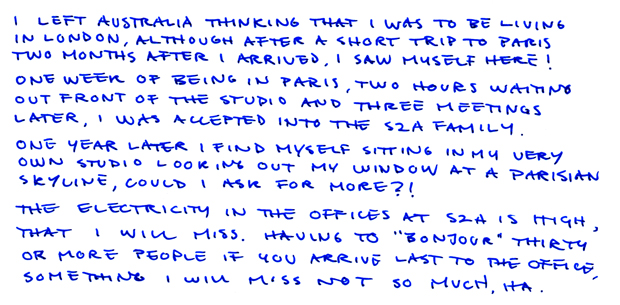 I LEFT AUSTRALIA THINKING THAT I WAS TO BE LIVING
IN LONDON, ALTHOUGH AFTER A SHORT TRIP TO PARIS
TWO MONTHS AFTER I ARRIVED, I SAW MYSELF HERE!
ONE WEEK OF BEING IN PARIS, TWO HOURS WAITING
OUT FRONT OF THE STUDIO AND THREE MEETINGS
LATER, I WAS ACCEPTED INTO THE S2A FAMILY.
ONE YEAR LATER I FIND MYSELF SITTING IN MY VERY
OWN STUDIO LOOKING OUT MY WINDOW AT A PARISIAN
SKYLINE, COULD I ASK FOR MORE?!
THE ELECTRICITY IN THE OFFICES AT S2A IS HIGH,
THAT I WILL MISS. HAVING TO "BONJOUR" THIRTY
OR MORE PEOPLE IF YOU ARRIVE LAST TO THE OFFICE,
SOMETHING I WILL MISS NOT SO MUCH, HA.